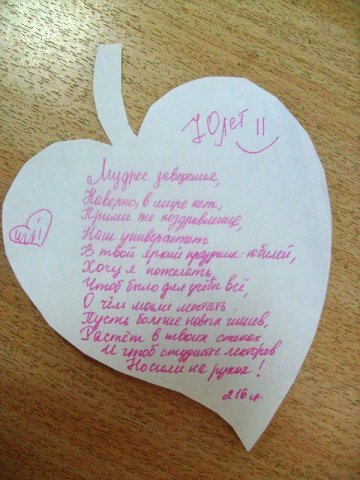 70 лет !!
Мудрее заведенья,
Наверно, в мире нет,
Прими же поздравленье,
Наш университет.
В твой яркий праздник-юбилей,
Хочу я пожелать,
Чтоб было для учёбы всё,
О чём можно мечтать.
Пусть больше новых
Растёт в твоих стенах
И чтоб студенты лекторов
Носили на руках!
216 л.